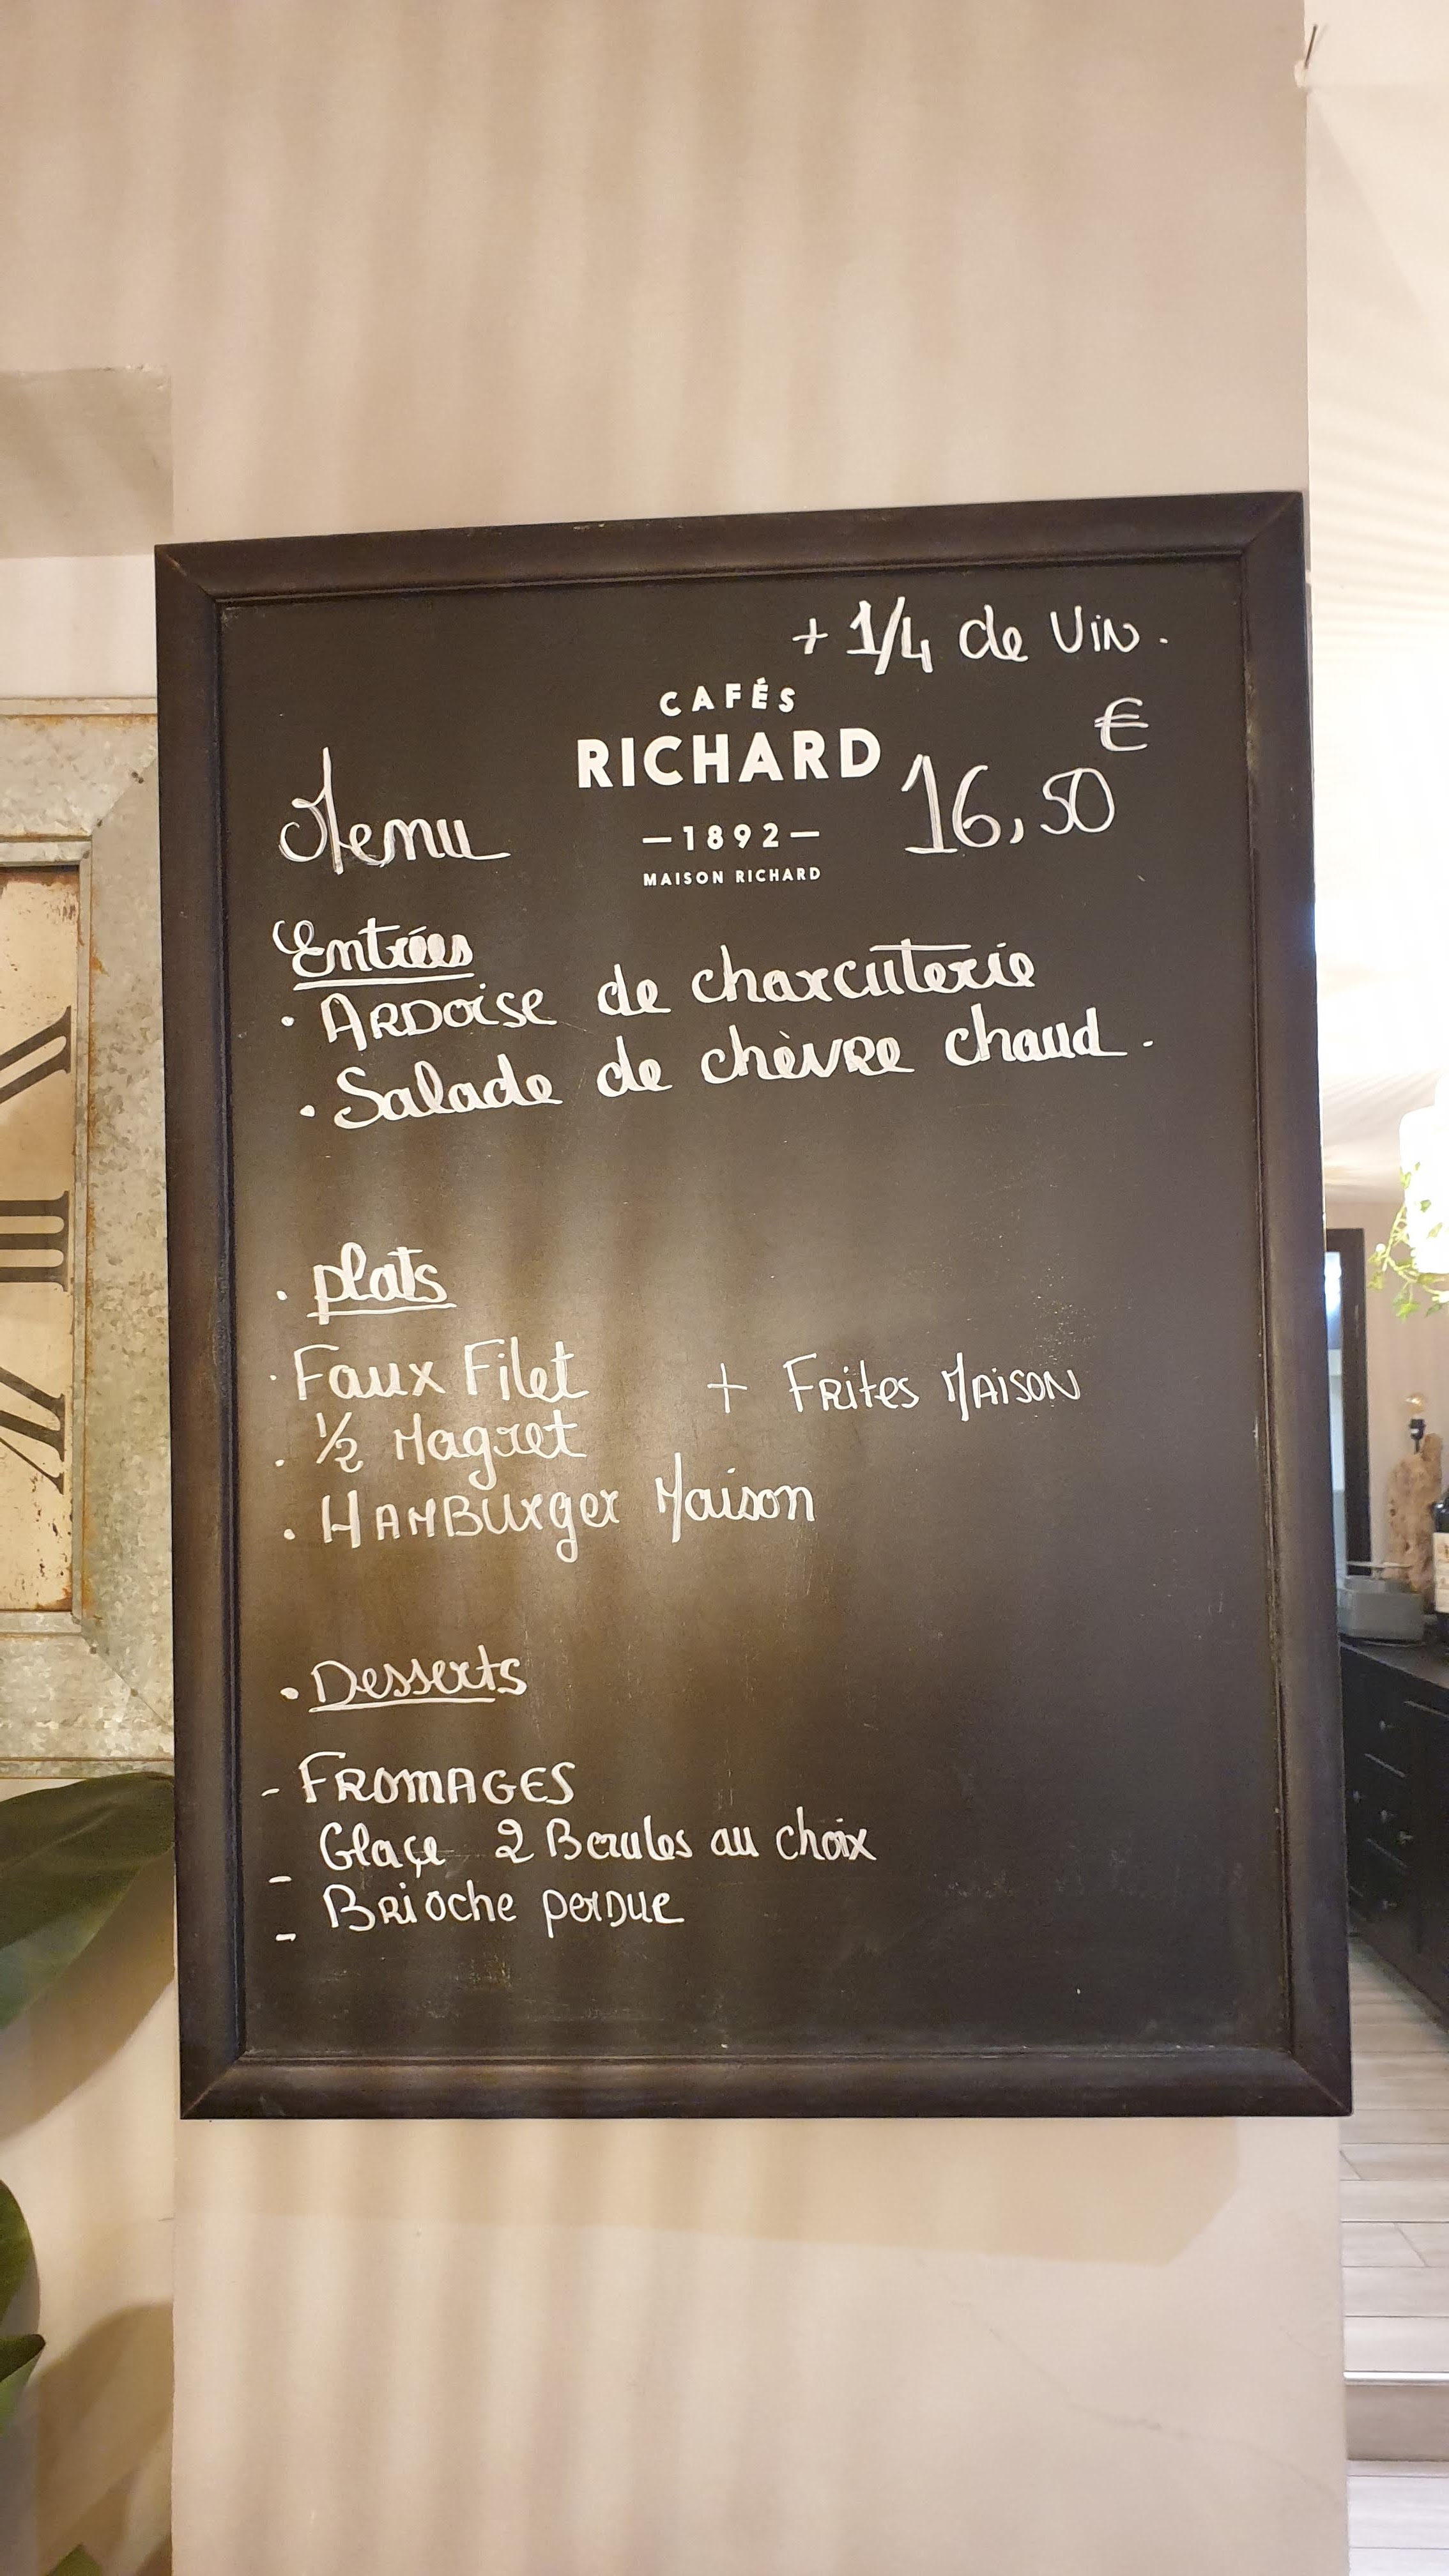 + 1/4 de Vin.
CAFÉS
RICHARD
€
Menu
16,50
—1892—
MAISON RICHARD
Entrées
· ARDoise de charcuterie
· Salade de chèvre chaud.
· plats
· Faux Filet + Frites MAISON
· 1/2 Magret
· HAMBUrger Maison
· Desserts
- FROMAGES
- Glaçe 2 Boules au choix
- BRioche perDue
III